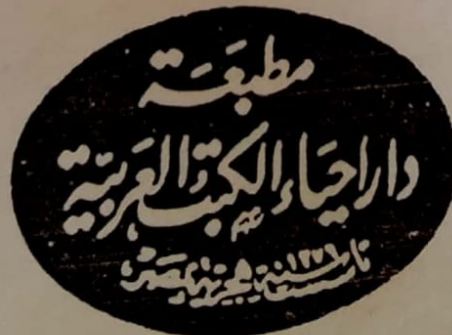 مطبعة
دار إحياء الكتب العربية
سنة ١٢٧٦ هجرية بمصر